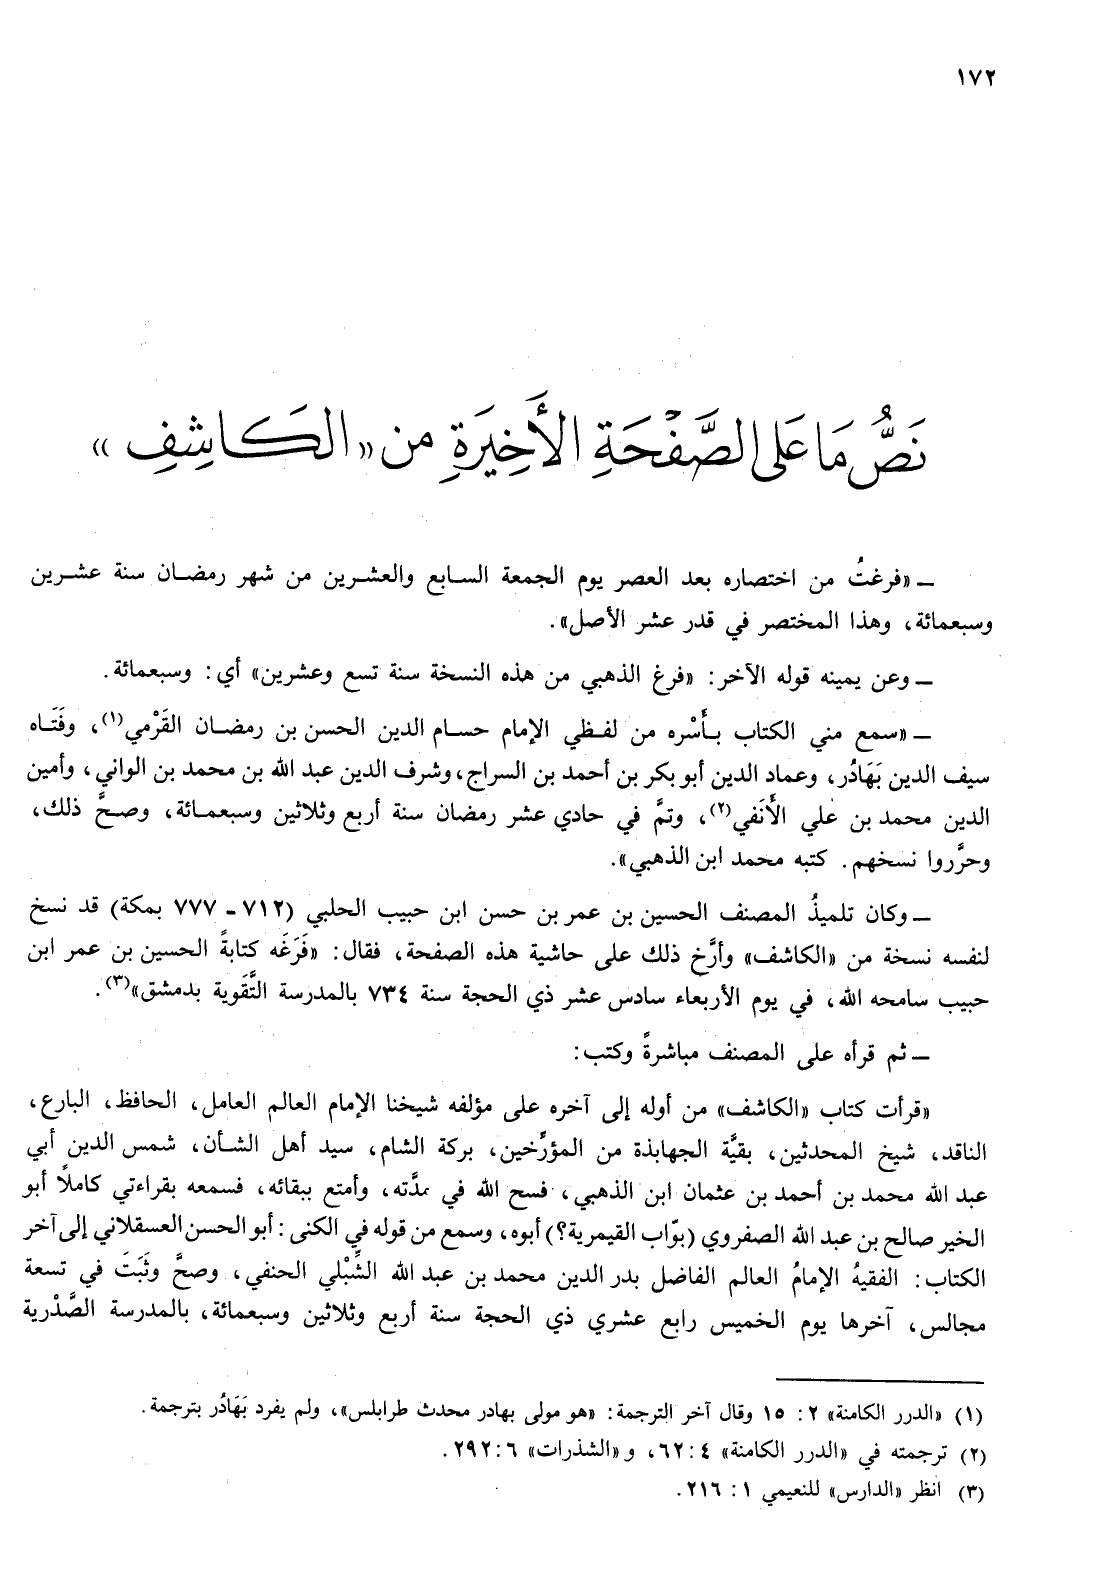 ١٧٢
نَصُّ مَا عَلى الصَّفْحَةِ الأَخِيرَةِ من «الكَاشِفِ»
ــ «فرغتُ من اختصاره بعد العصر يوم الجمعة السابع والعشرين من شهر رمضان سنة عشرين
وسبعمائة، وهذا المختصر في قدر عشر الأصل».
ــ وعن يمينه قوله الآخر: «فرغ الذهبي من هذه النسخة سنة تسع وعشرين» أي: وسبعمائة.
ــ «سمع مني الكتاب بأَسْره من لفظي الإمام حسام الدين الحسن بن رمضان القَرْمي(١)، وفَتَاه
سيف الدين بَهَادُر، وعماد الدين أبو بكر بن أحمد بن السراج، وشرف الدين عبد الله بن محمد بن الواني، وأمين
الدين محمد بن علي الأَنَفي(٢)، وتمَّ في حادي عشر رمضان سنة أربع وثلاثين وسبعمائة، وصحَّ ذلك،
وحرَّروا نسخهم. كتبه محمد ابن الذهبي».
ــ وكان تلميذُ المصنف الحسين بن عمر بن حسن ابن حبيب الحلبي (٧١٢ - ٧٧٧ بمكة) قد نسخ
لنفسه نسخة من «الكاشف» وأرَّخ ذلك على حاشية هذه الصفحة، فقال: «فَرَغَه كتابةً الحسين بن عمر ابن
حبيب سامحه الله، في يوم الأربعاء سادس عشر ذي الحجة سنة ٧٣٤ بالمدرسة التَّقَوية بدمشق»(٣).
ــ ثم قرأه على المصنف مباشرةً وكتب:
«قرأت كتاب «الكاشف» من أوله إلى آخره على مؤلفه شيخنا الإمام العالم العامل، الحافظ، البارع،
الناقد، شيخ المحدثين، بقيَّة الجهابذة من المؤرِّخين، بركة الشام، سيد أهل الشأن، شمس الدين أبي
عبد الله محمد بن أحمد بن عثمان ابن الذهبي، فسح الله في مدَّته، وأمتع ببقائه، فسمعه بقراءتي كاملاً أبو
الخير صالح بن عبد الله الصفروي (بوّاب القيمرية؟) أبوه، وسمع من قوله في الكنى: أبو الحسن العسقلاني إلى آخر
الكتاب: الفقيهُ الإمامُ العالم الفاضل بدر الدين محمد بن عبد الله الشِّبْلي الحنفي، وصحَّ وثَبَتَ في تسعة
مجالس، آخرها يوم الخميس رابع عشري ذي الحجة سنة أربع وثلاثين وسبعمائة، بالمدرسة الصَّدْرية
(١) «الدرر الكامنة» ٢: ١٥ وقال آخر الترجمة: «هو مولى بهادر محدث طرابلس»، ولم يفرد بَهَادُر بترجمة.
(٢) ترجمته في «الدرر الكامنة» ٤: ٦٢، و «الشذرات» ٦: ٢٩٢.
(٣) انظر «الدارس» للنعيمي ١: ٢١٦.